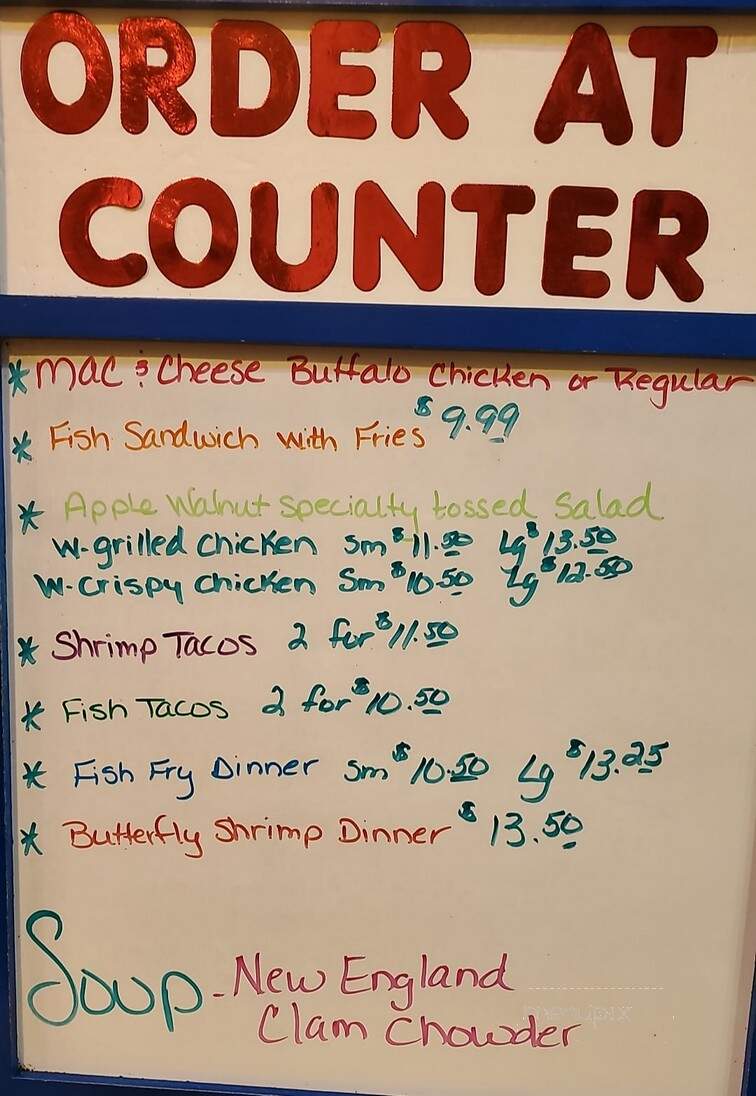 ORDER AT
COUNTER
* Mac & Cheese Buffalo Chicken or Regular
* Fish Sandwich with Fries $9.99
* Apple Walnut specialty tossed Salad
w-grilled chicken Sm $11.50 Lg $13.50
w-crispy chicken Sm $10.50 Lg $12.50
* Shrimp Tacos 2 for $11.50
* Fish Tacos 2 for $10.50
* Fish Fry Dinner Sm $10.50 Lg $13.25
* Butterfly Shrimp Dinner $13.50
Soup - New England
Clam Chowder
menupix